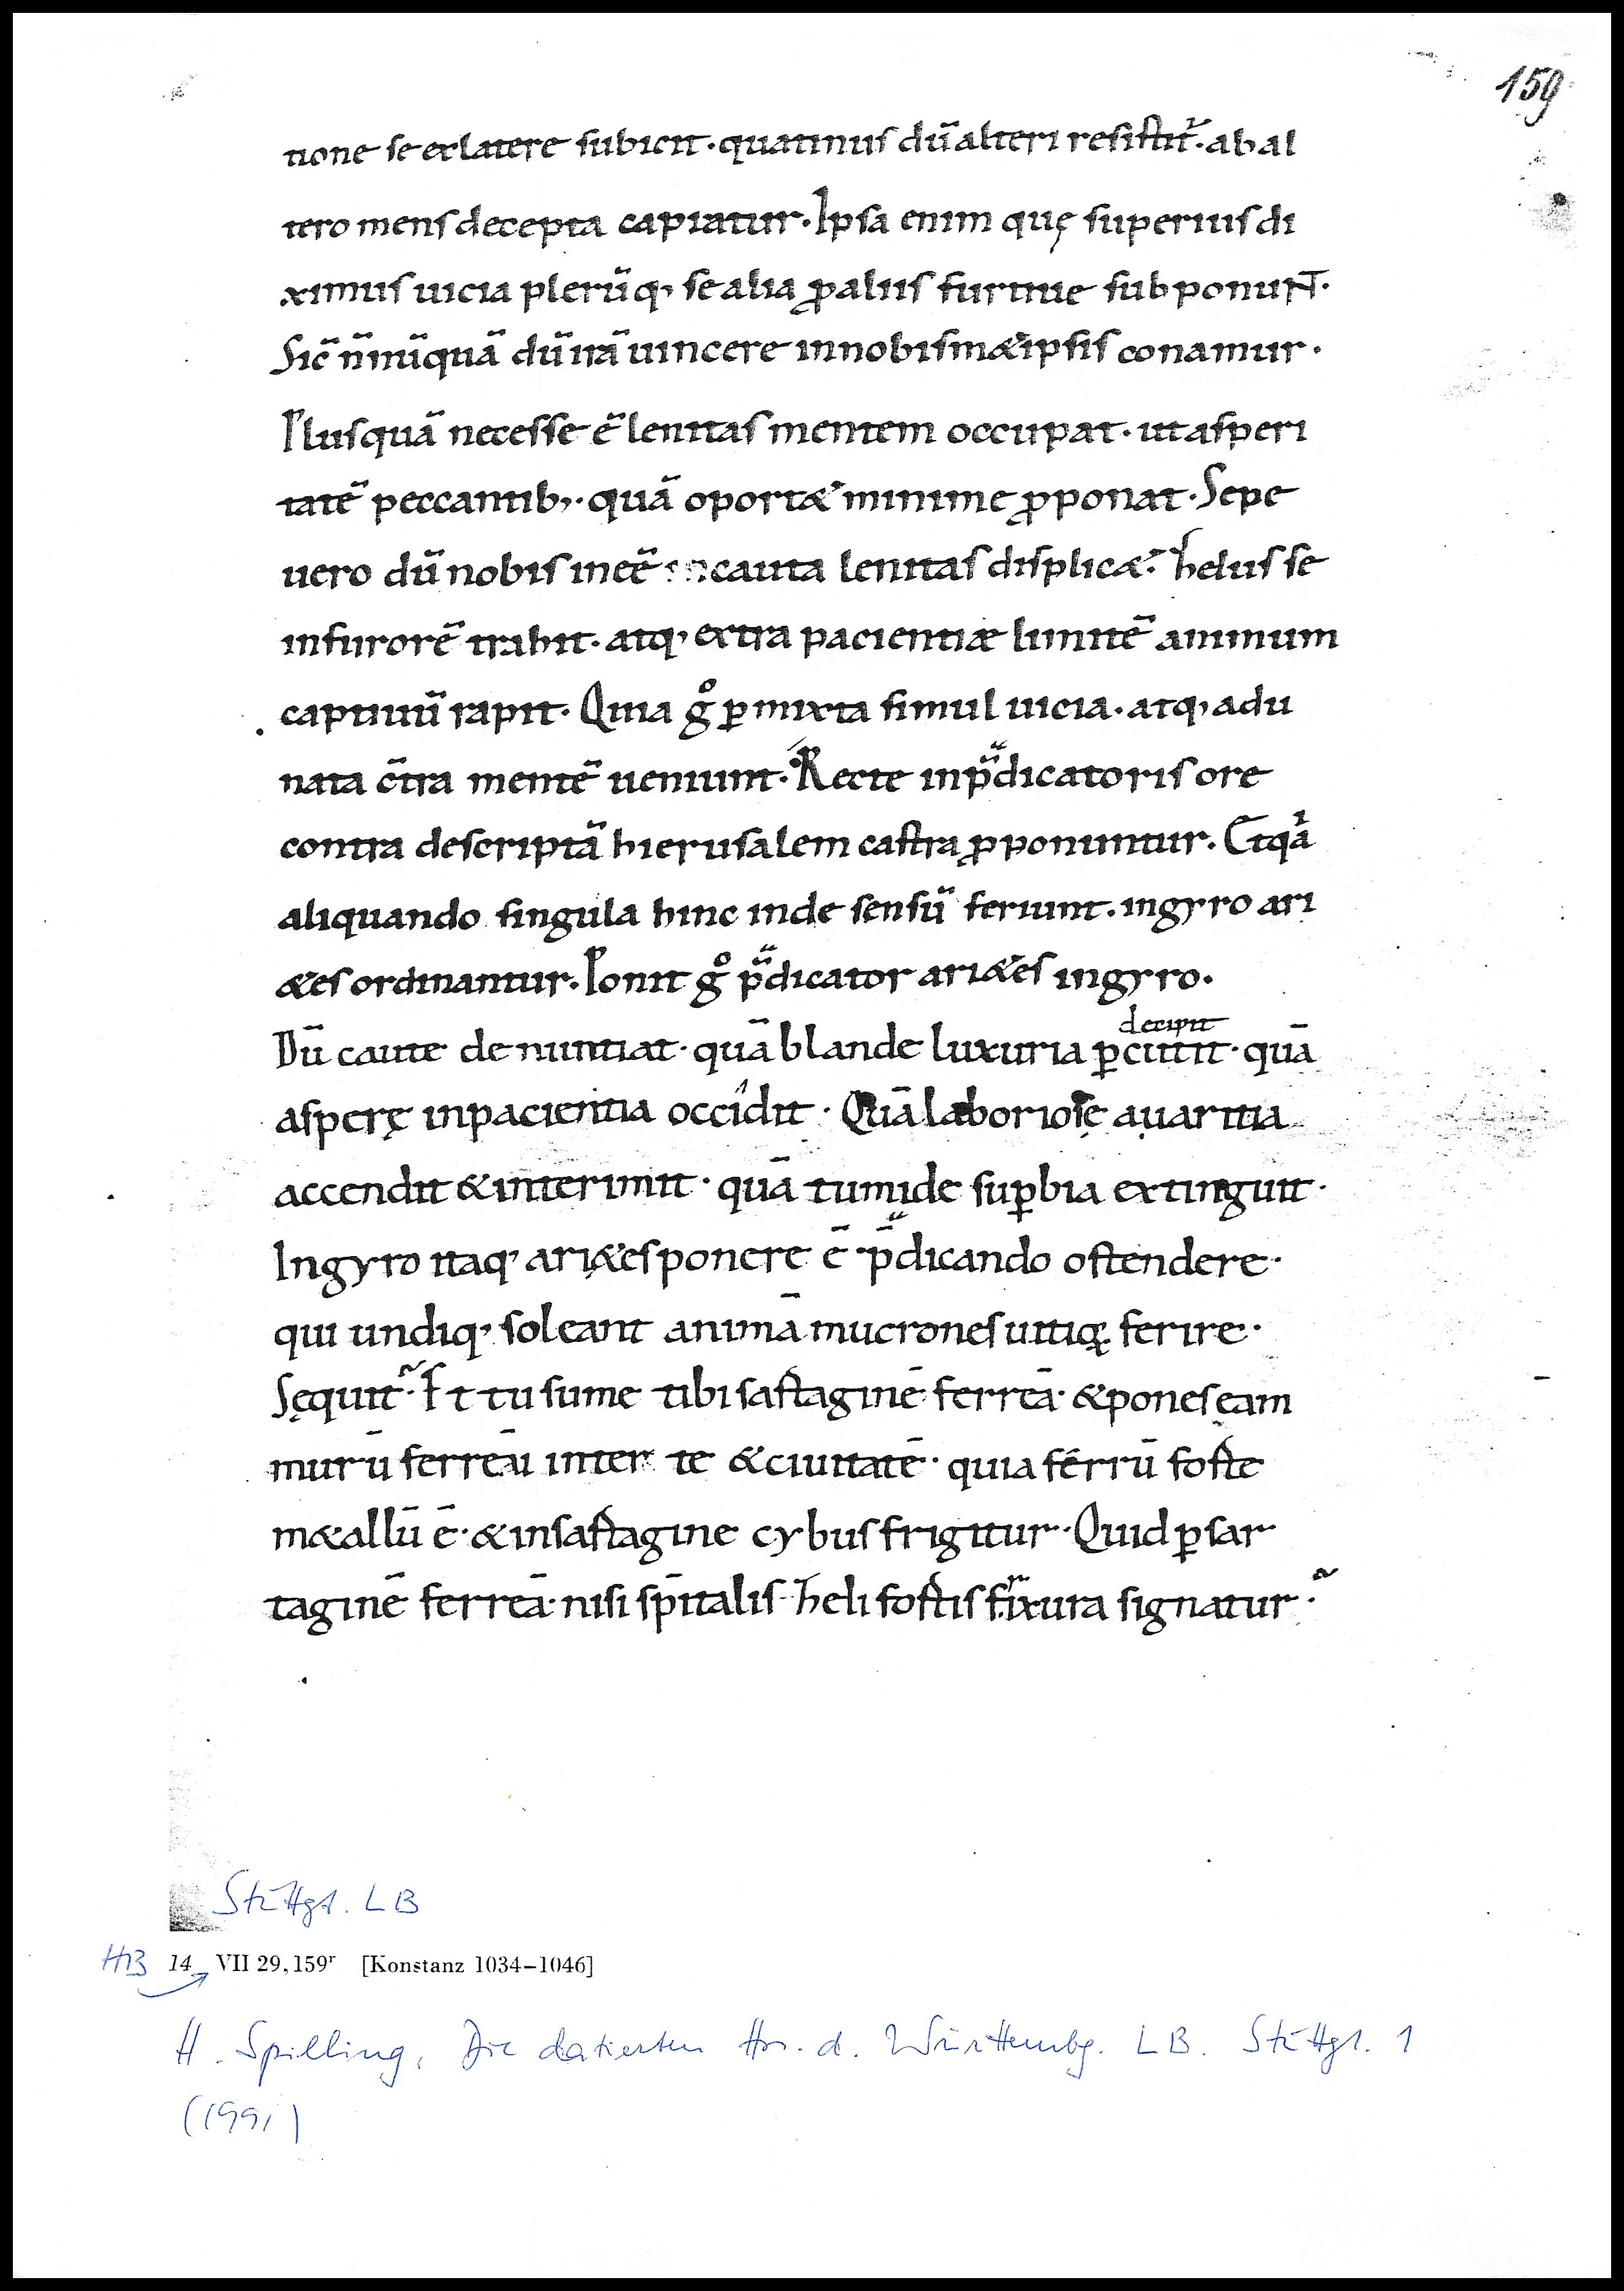 159
tione se exlatere subicit· quatinus dū alteri resistit᷑· abal
tero mens decepta capiatur· Ipsa enim quę superius di
ximus uicia plerūq; se alia ꝓaliis furtiue subponuNT·
Sic̄ n̄nūquā dū irā uincere innobismæipsis conamur·
Plusquā necesse ē lenitas mentem occupat· ut asperi
tatē peccantib;· quā oportæ minime ꝓponat· Sepe
uero dū nobis ineē incauta lenitas displicæ· helus se
infurorē trahit· atq; extra pacientiæ limitē animum
captiuū rapit· Quia gͦ ꝑmixta simul uicia· atq; adu
nata c̄tra mentē ueniunt· Recte inp̄dicatoris ore
contra descriptā hierusalem castra ꝓponuntur· Etqͣa
aliquando singula hinc inde sensū feriunt· ingyro ari
&es ordinantur· Ponit gͦ p̄dicator ari&es ingyro·
Dū caute denuntiat· quā blande luxuria ꝑcutit· quā
decipit
asperę inpacientia occidit· Quā laboriosę auaritia
accendit & interimit· quā tumide suꝑbia extinguit·
Ingyro itaq; ari&es ponere ē· p̄dicando ostendere·
qui undiq; soleant animā mucrones uitiq; ferire·
Sequit᷑· Et tu sume tibi sartaginē ferreā· & pones eam
murū ferreū inter te & ciuitatē· quia ferrū forte
m&allū ē· & insartagine cybus frigitur· Quid ꝑ sar
taginē ferreā· nisi sp̄italis heli fortis frixura signatur·
Stuttgt. LB
HB 14 VII 29, 159ʳ [Konstanz 1034–1046]
H. Spilling, Die datierten Hss. d. Württembg. LB. Stuttgt. 1
(1991)